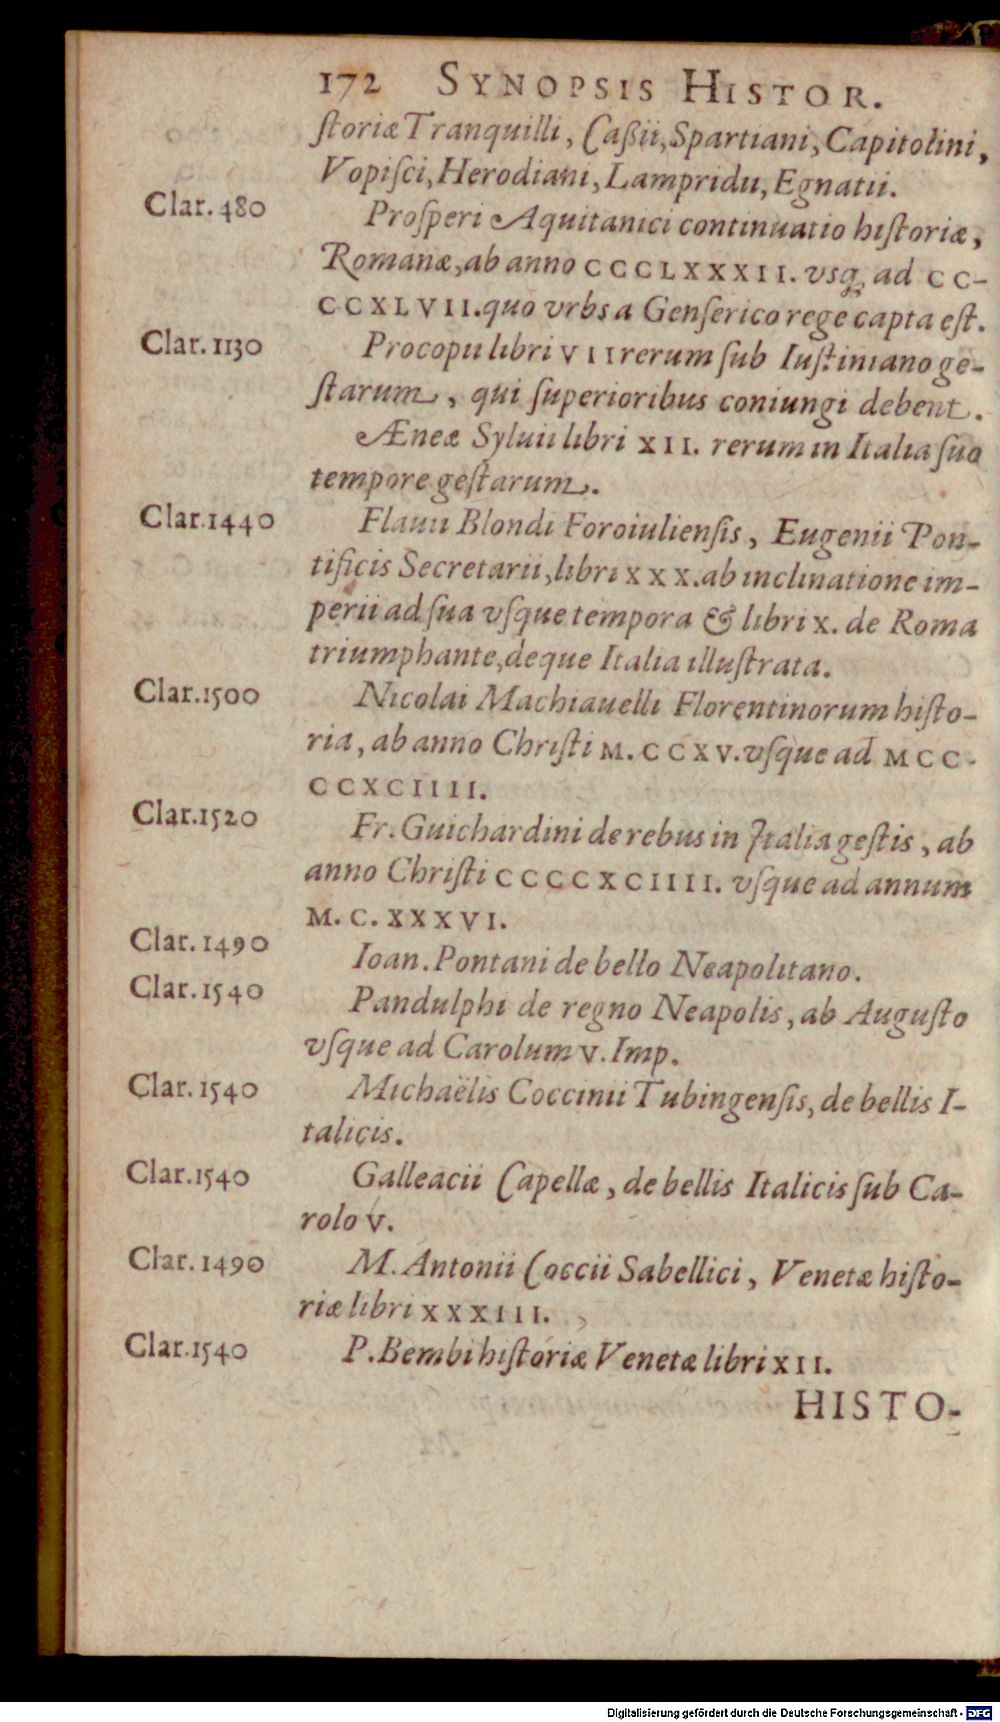 172 SYNOPSIS HISTOR.
ſtoriæ Tranquilli, Caßii, Spartiani, Capitolini,
Vopiſci, Herodiani, Lampridii, Egnatii.
Clar. 480
Proſperi Aquitanici continuatio hiſtoriæ,
Romanæ, ab anno CCCLXXXII. vsq; ad CC-
CCXLVII. quo vrbs a Genſerico rege capta eſt.
Clar. 1130
Procopii libri VII rerum ſub Iuſtiniano ge-
ſtarum, qui ſuperioribus coniungi debent.
Æneæ Syluii libri XII. rerum in Italia ſuo
tempore geſtarum.
Clar. 1440
Flauii Blondi Foroiulienſis, Eugenii Pon-
tificis Secretarii, libri XXX. ab inclinatione im-
perii ad ſua vſque tempora & libri X. de Roma
triumphante, deque Italia illuſtrata.
Clar. 1500
Nicolai Machiauelli Florentinorum hiſto-
ria, ab anno Chriſti M. CCXV. vſque ad MCC-
CCXCIIII.
Clar. 1520
Fr. Guichardini de rebus in Italia geſtis, ab
anno Chriſti CCCCXCIIII. vſque ad annum
M. C. XXXVI.
Clar. 1490
Ioan. Pontani de bello Neapolitano.
Clar. 1540
Pandulphi de regno Neapolis, ab Auguſto
vſque ad Carolum V. Imp.
Clar. 1540
Michaëlis Coccinii Tubingenſis, de bellis I-
talicis.
Clar. 1540
Galleacii Capellæ, de bellis Italicis ſub Ca-
rolo V.
Clar. 1490
M. Antonii Coccii Sabellici, Venetæ hiſto-
riæ libri XXXIII.
Clar. 1540
P. Bembi hiſtoriæ Venetæ libri XII.
HISTO-
Digitalisierung gefördert durch die Deutsche Forschungsgemeinschaft - DFG